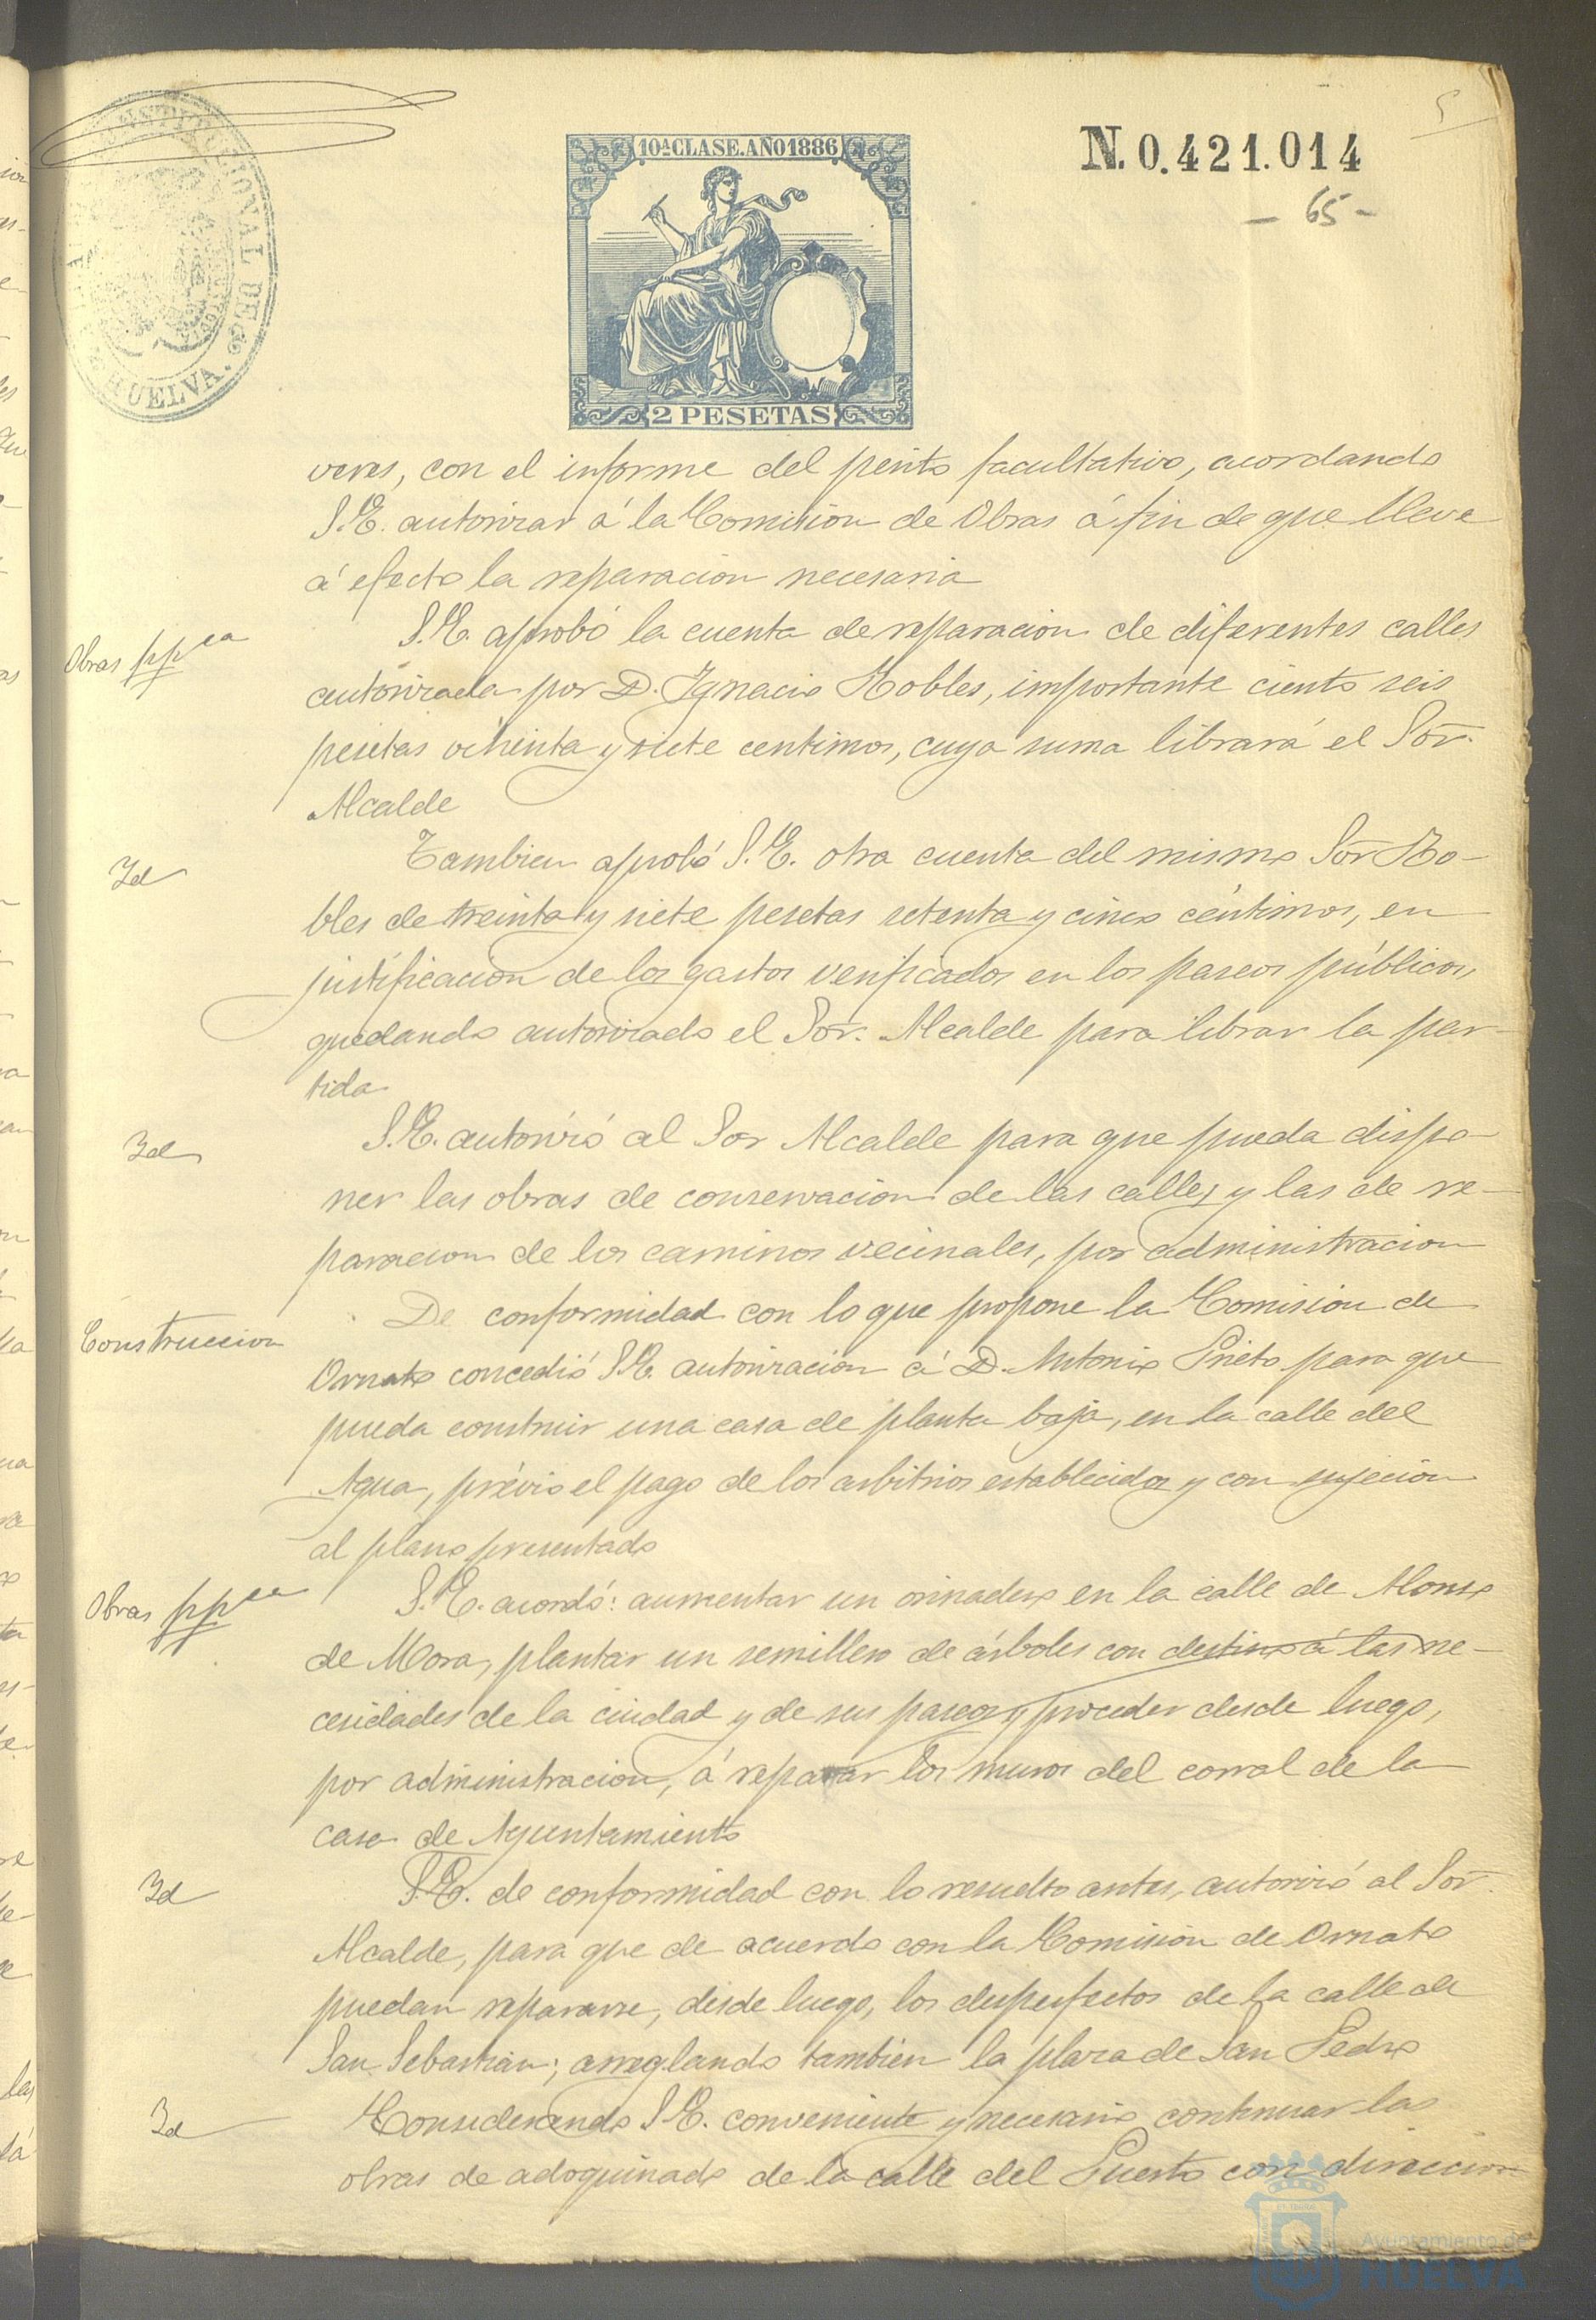 5
10ª CLASE. AÑO 1886
N. 0.421.014
- 65 -
CONSTITUCIONAL DE
HUELVA.
2 PESETAS
veres, con el informe del perito facultativo, acordando
S.E. autorizar á la Comision de Obras á fin de que lleve
á efecto la reparacion necesaria
Obras ppcas
S.E. aprobó la cuenta de reparacion de diferentes calles
autorizada por D. Ignacio Robles, importante ciento seis
pesetas ochenta y siete centimos, cuya suma librará el Sor.
Alcalde
Id
Tambien aprobó S.E. otra cuenta del mismo Sor Ro-
bles de treinta y siete pesetas setenta y cinco céntimos, en
justificacion de los gastos verificados en los paseos públicos,
quedando autorizado el Sor. Alcalde para librar la par-
tida
Id
S.E. autorizó al Sor Alcalde para que pueda dispo-
ner las obras de conservacion de las calles y las de re-
paracion de los caminos vecinales, por administracion
Construccion
De conformidad con lo que propone la Comision de
Ornato concedió S.E. autorizacion á D. Antonio Prieto para que
pueda construir una casa de planta baja, en la calle del
Agua, prévio el pago de los arbitrios establecidos y con sujecion
al plano presentado
Obras ppcas
S.E. acordó: aumentar un orinadero en la calle de Alonso
de Mora, plantar un semillero de árboles con destino á las ne-
cesidades de la ciudad y de sus paseos y proceder desde luego,
por administracion, á reparar los muros del corral de la
casa de Ayuntamiento
Id
S.E. de conformidad con lo resuelto antes, autorizó al Sor.
Alcalde, para que de acuerdo con la Comision de Ornato
puedan repararse, desde luego, los desperfectos de la calle de
San Sebastian; arreglando tambien la plaza de San Pedro
Id
Considerando S.E. conveniente y necesario continuar las
obras de adoquinado de la calle del Puerto con direccion
Ayuntamiento de
HUELVA